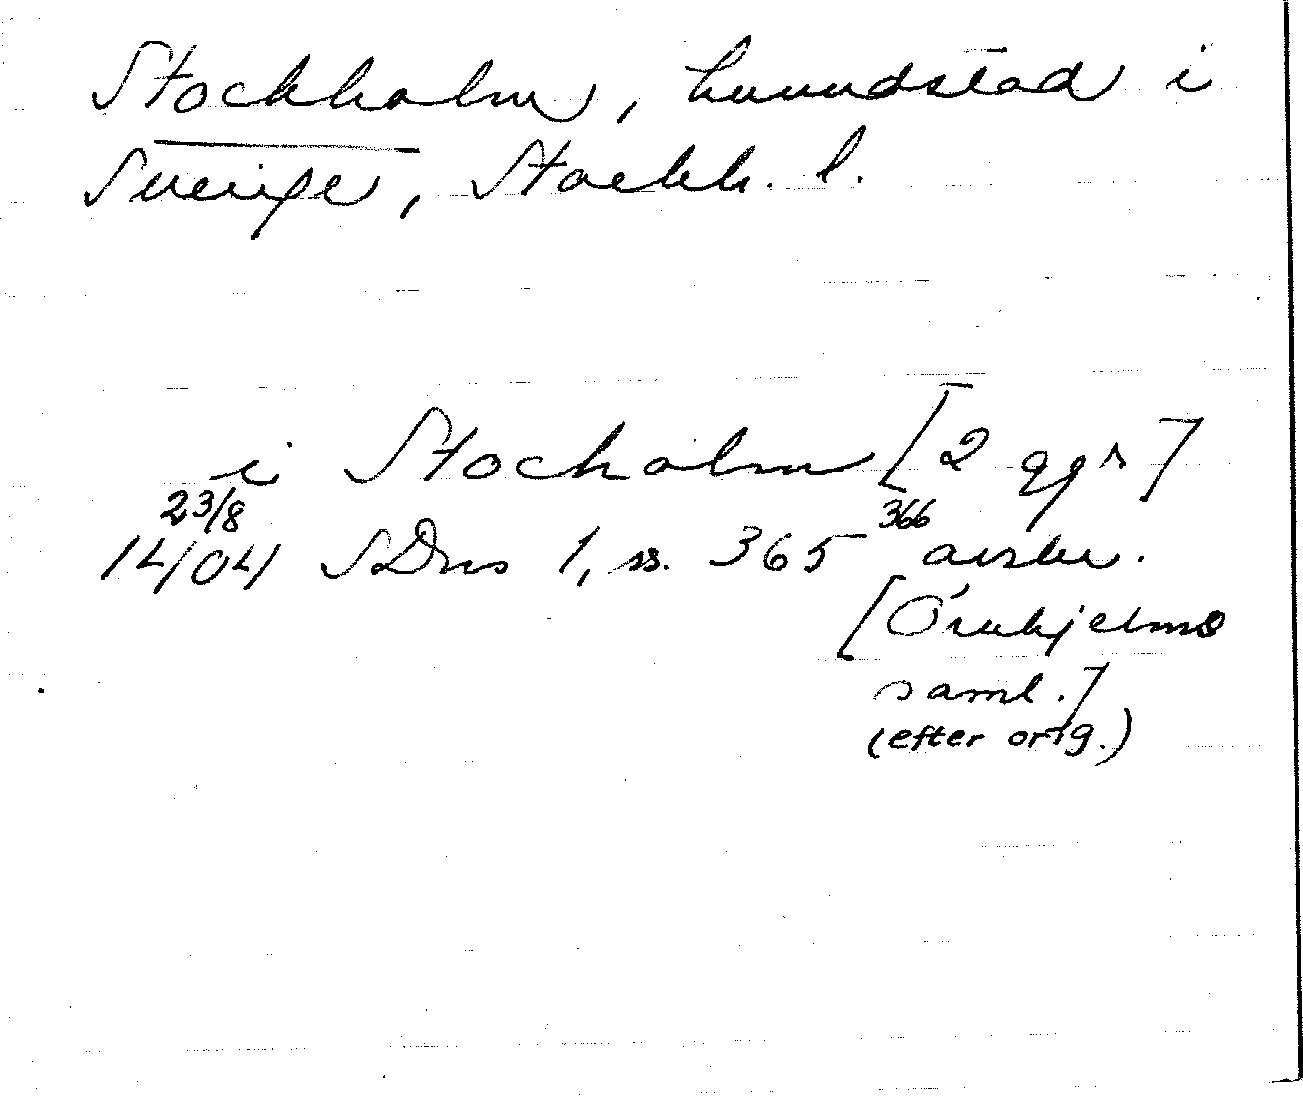 Stockholm, huvudstad i
Sverige, Stockh. l.
i Stocholm [2 ggr]
23/8 366
14/04 SDns 1, ss. 365 avskr.
[Örnhjelms
saml.]
(efter orig.)